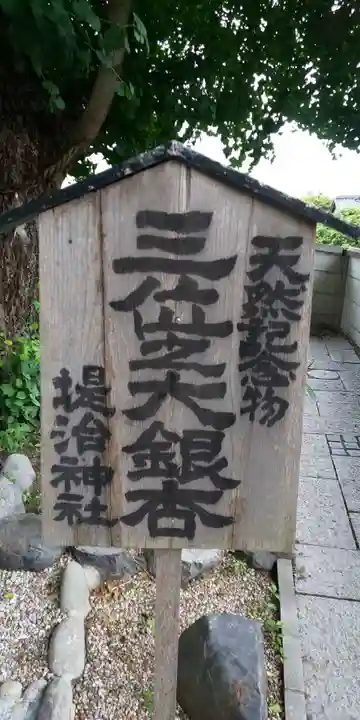 天然記念物
三仙之大銀杏
堤治神社